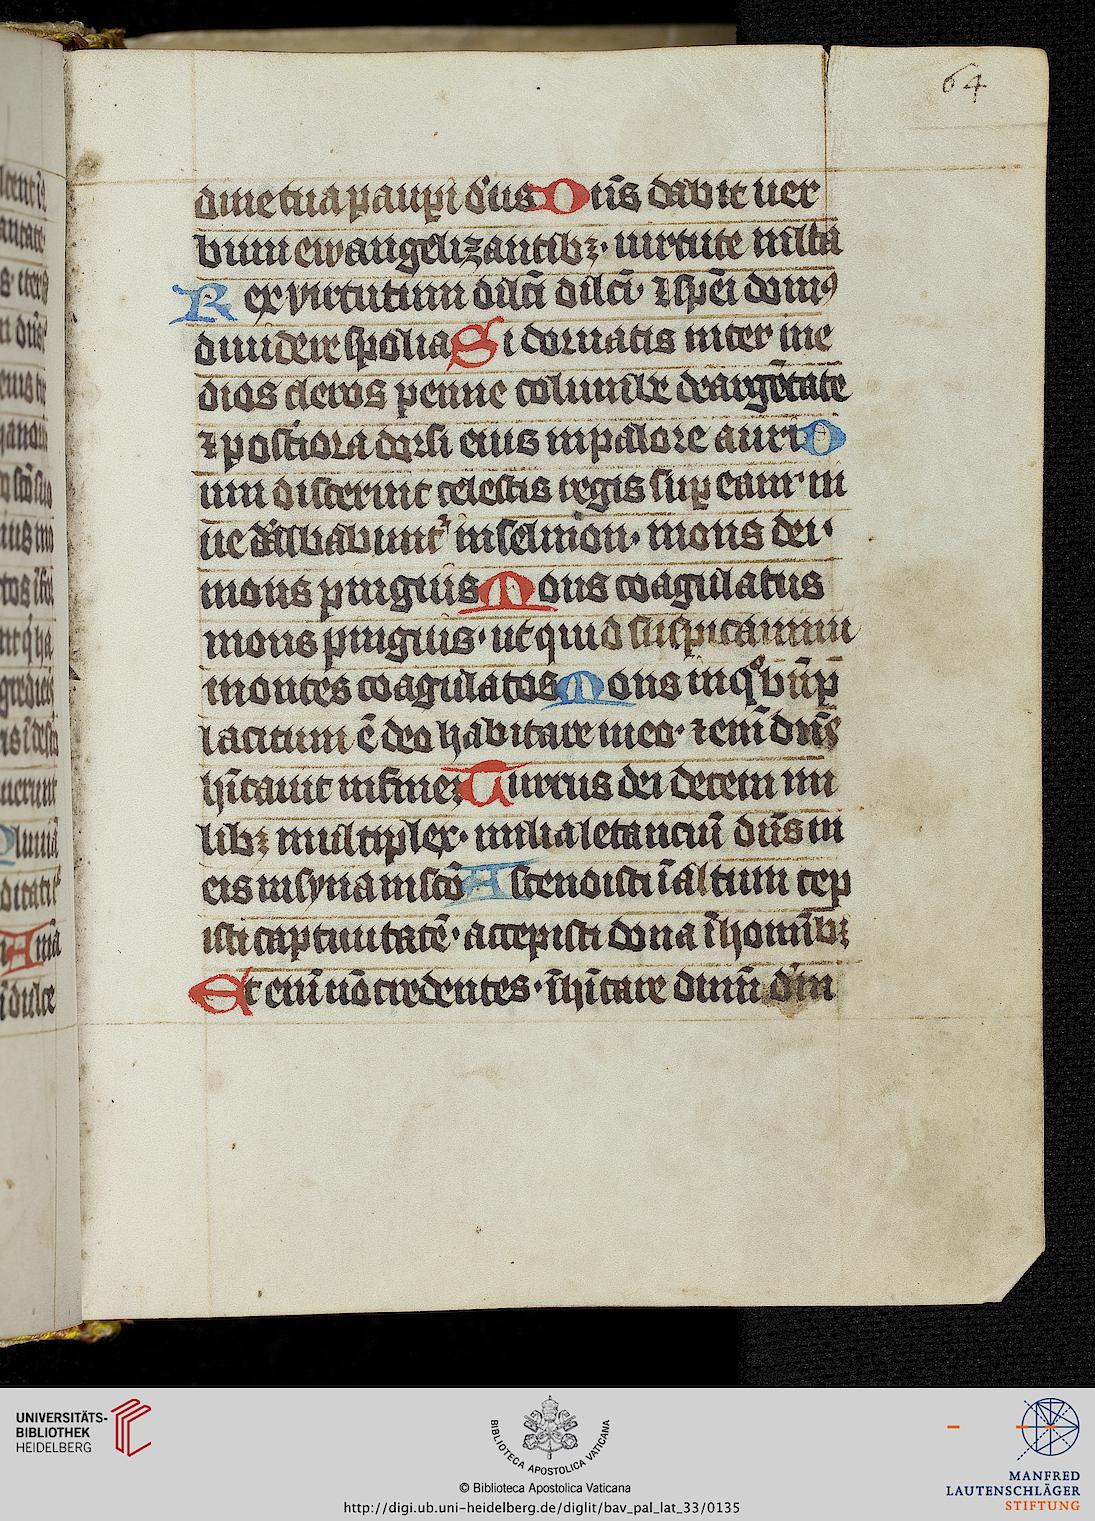 64
dine tua paupi d's Dn̄s dabit uer
bum ewangelizantibꝫ· uirtute mlta
Rex virtutum dilc̄i dilc̄i· ⁊ sp̄ei domꝰ
diuidere spolia Si dormatis inter me
dios cleros penne columbe deargētate
⁊ posteriora dorsi eius in palore auri D
um discernit celestis reges sup eam· ni
ue dealbabuntᷣ in selmon· mons dei·
mons pinguis Mons coagulatus
mons pinguis· ut quid suspicamini
montes coagulatos Mons in qͦ bn̄p
lacitum ē deo habitare in eo· ⁊enī dn̄s
hītauit in fineꝫ Currus dei decem mi
libꝫ multiplex· milia letanciū dn̄s in
eis in syna in scō Ascendisti ī altum cep
isti captiuitatē· accepisti dona ī homībꝫ
Et enī nō credentes· īhītare dnm̄ dm̄
UNIVERSITÄTS-
BIBLIOTHEK
HEIDELBERG
BIBLIOTECA APOSTOLICA VATICANA
© Biblioteca Apostolica Vaticana
http://digi.ub.uni-heidelberg.de/diglit/bav_pal_lat_33/0135
MANFRED
LAUTENSCHLÄGER
STIFTUNG